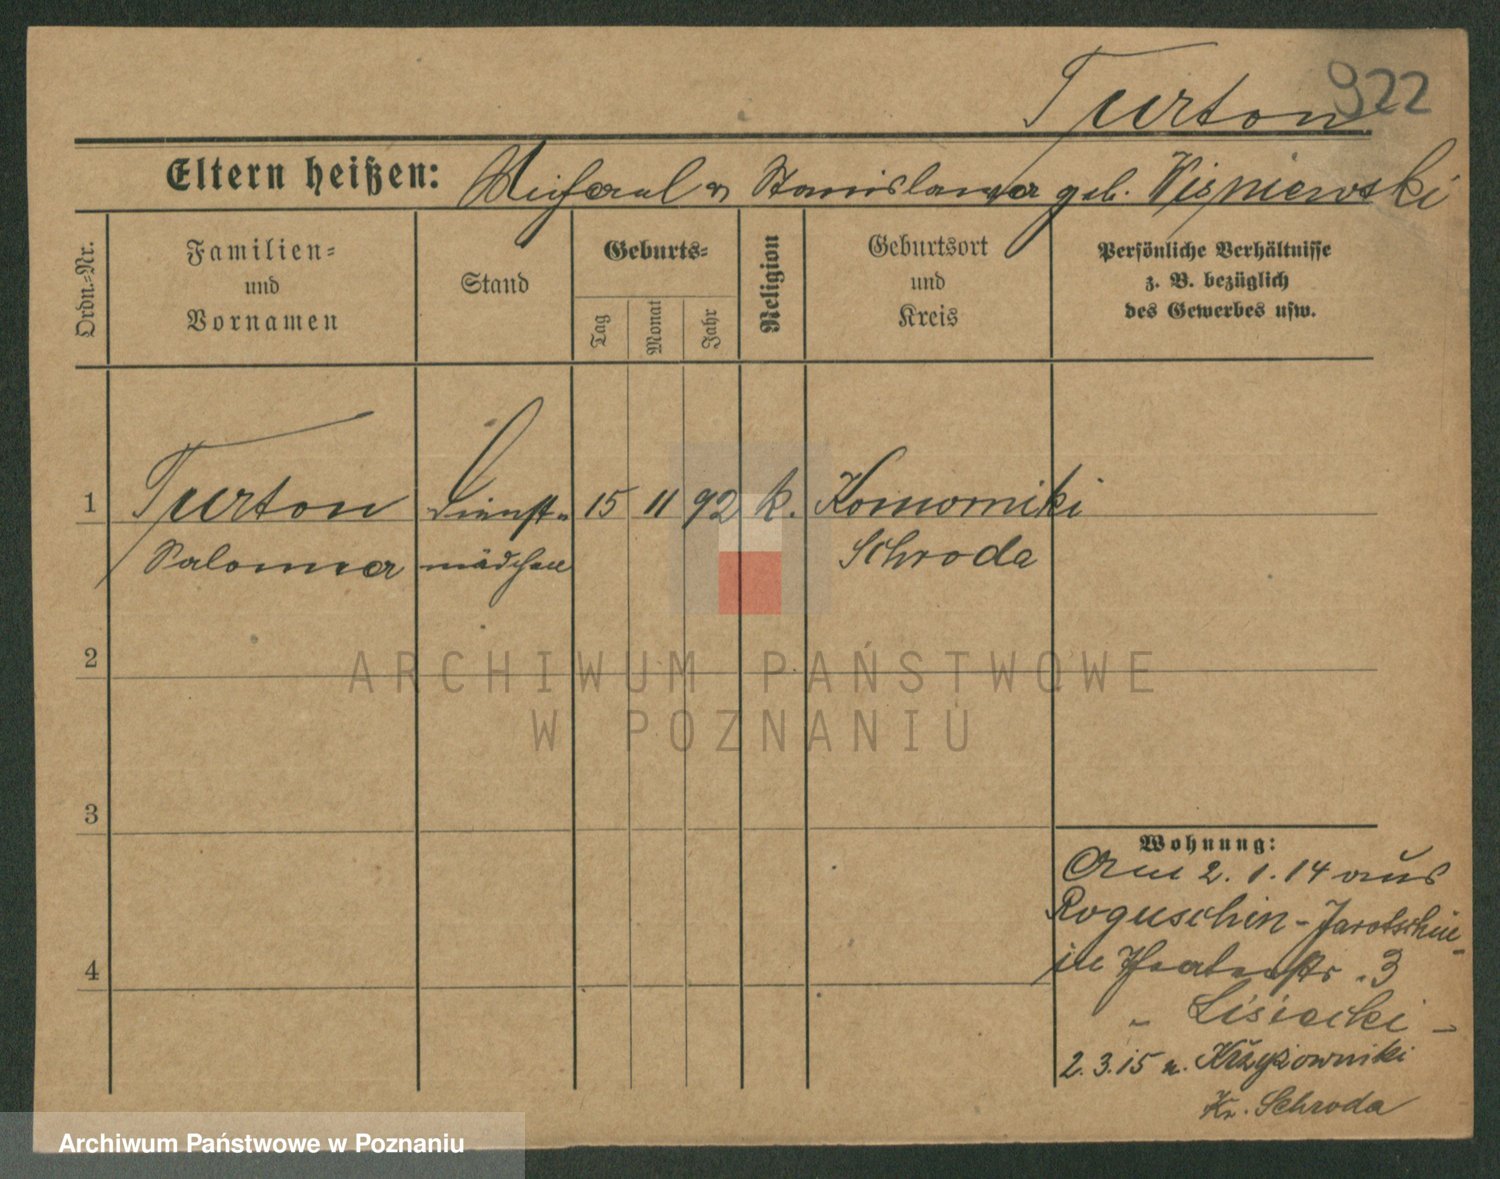 922
Turton
Eltern heißen: Michael u Stanislawa geb. Wisniewski
Ordn.-Nr.
Familien-
und
Vornamen
Stand
Geburts-
Tag
Monat
Jahr
Religion
Geburtsort
und
Kreis
Persönliche Verhältnisse
z. B. bezüglich
des Gewerbes usw.
1 Turton Dienst- 15 11 92 k. Komorniki
Salomea mädchen Schroda
2
3
4
Wohnung:
Am 2.1.14 aus
Roguschin-Jarotschin-
in 3
- Lisiecki -
2.3.15 n. Krzyżowniki
Kr. Schroda
ARCHIWUM PAŃSTWOWE
W POZNANIU
Archiwum Państwowe w Poznaniu